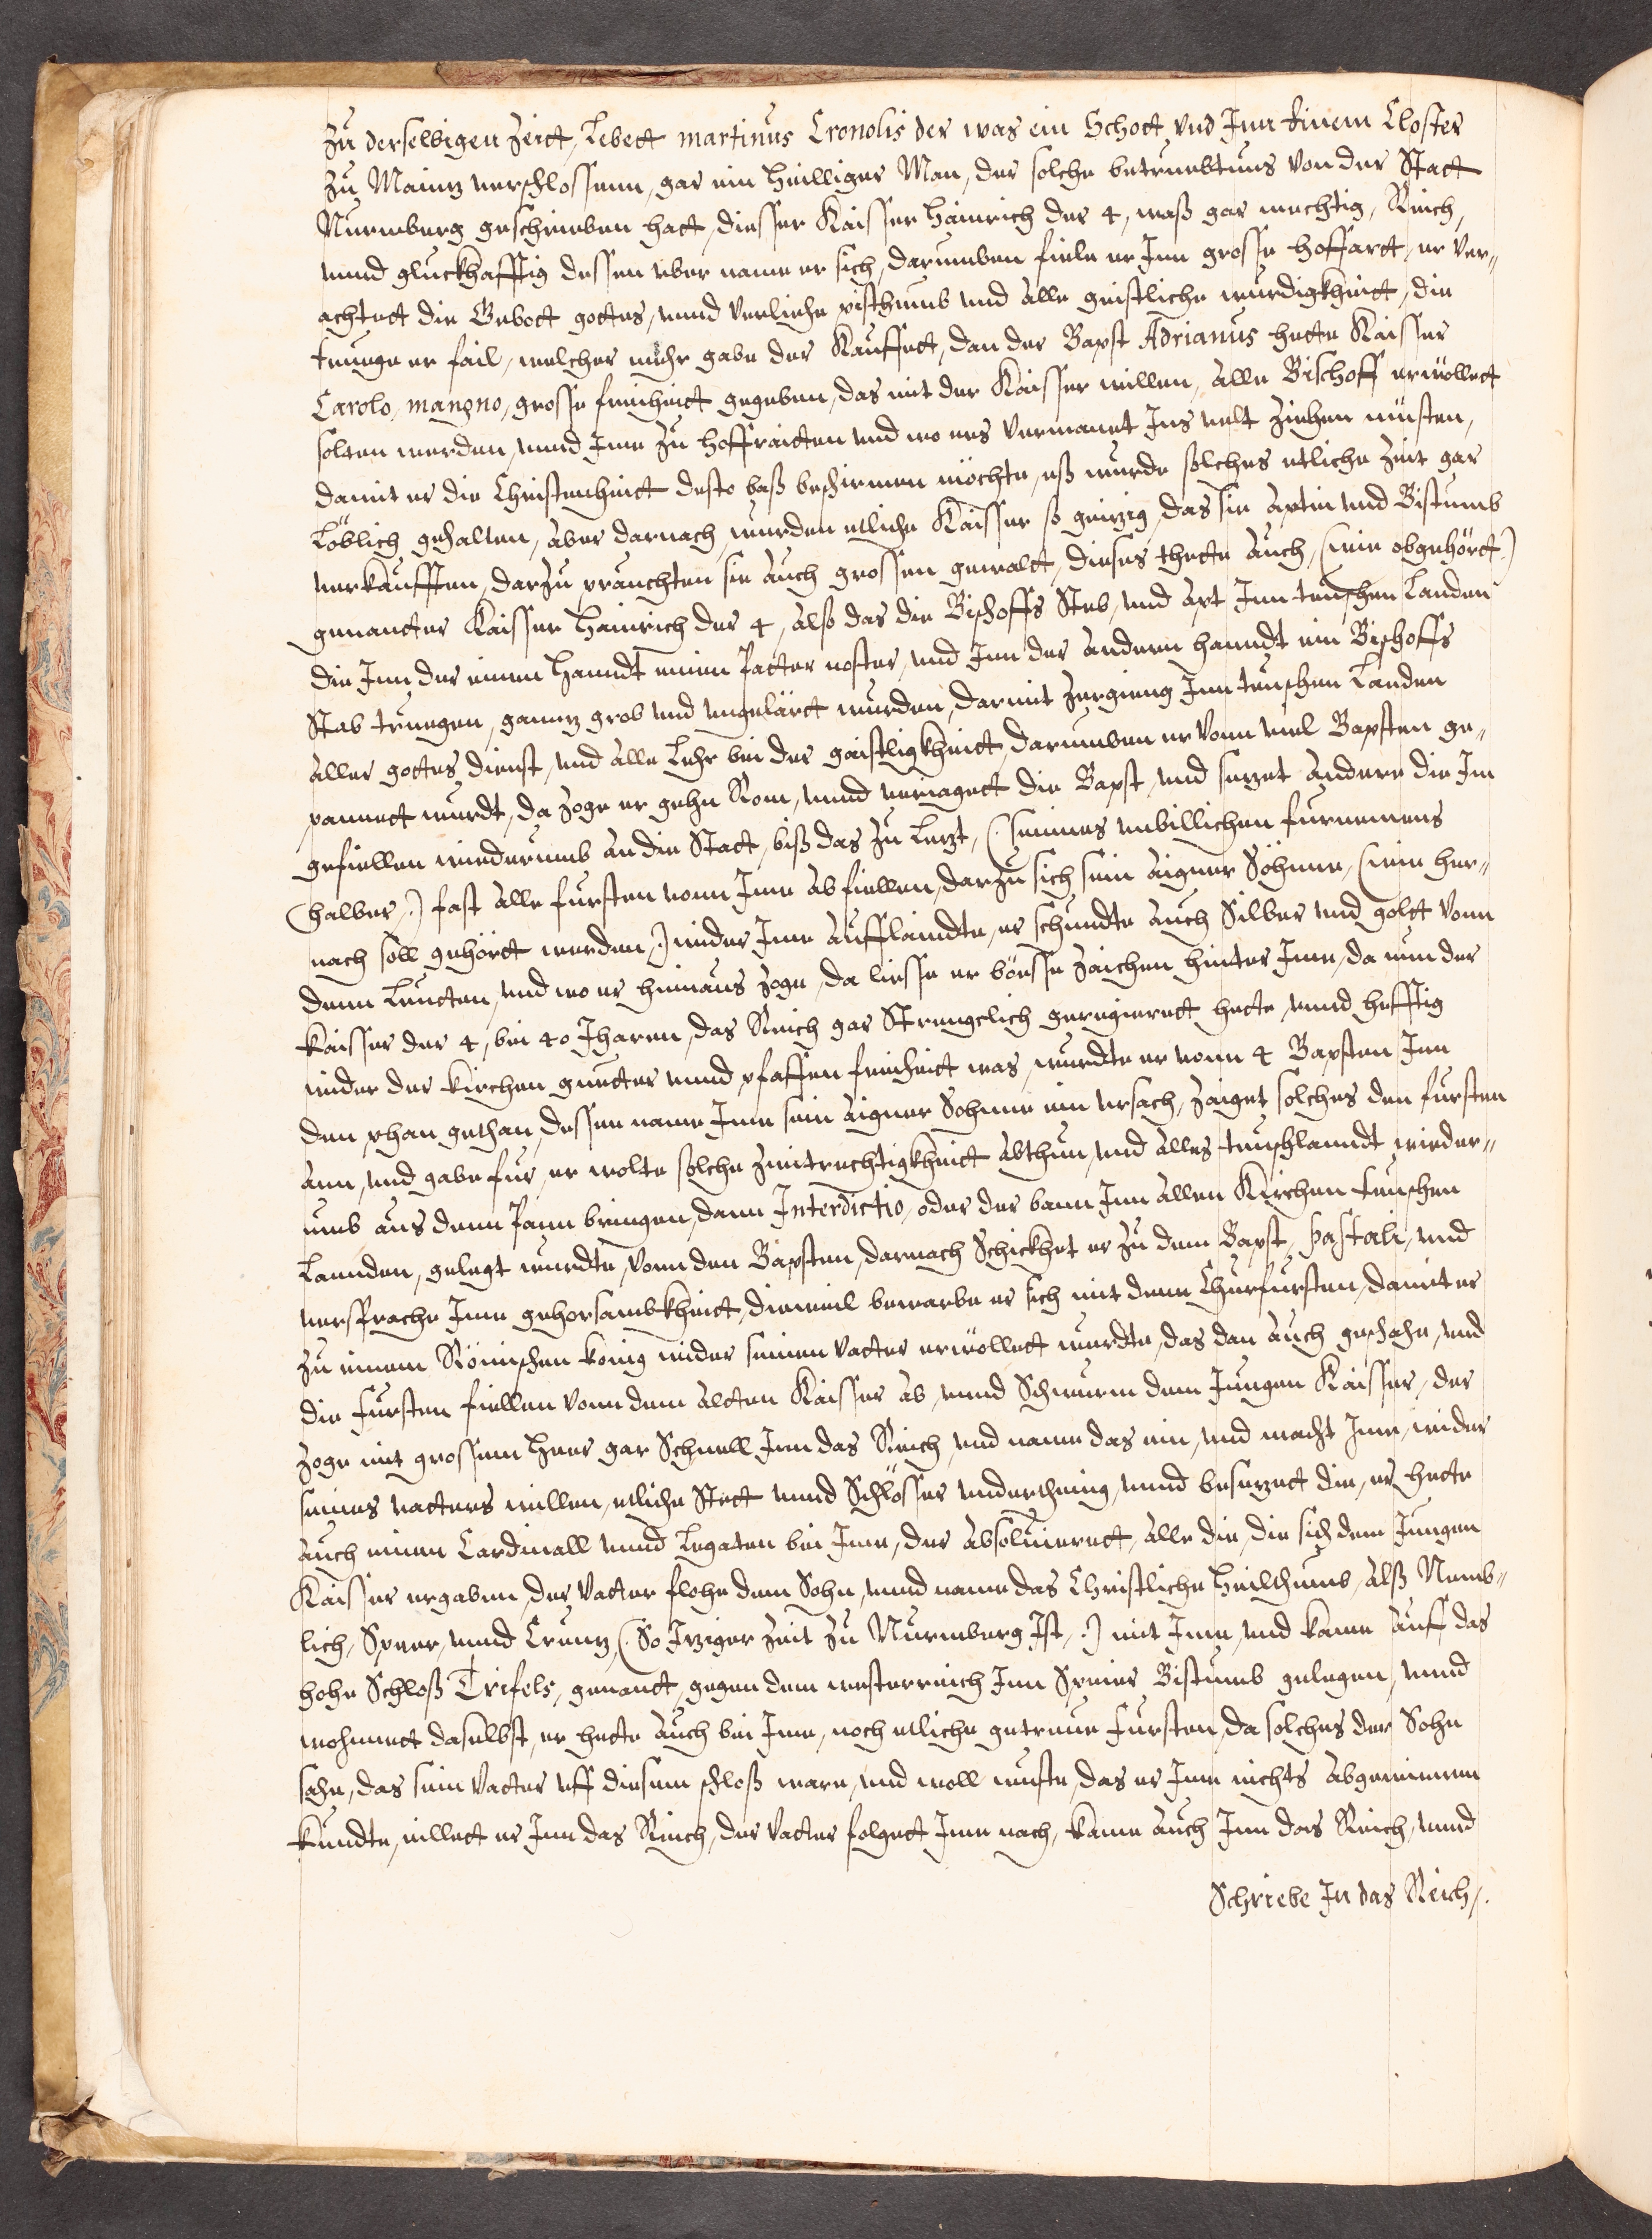 Zu derselbigen Zeitt, Lebett martinus Cronolis der was ein Schott vnd Inn einem Closter
Zu Maintz verschlossenn, gar ein heilliger Man, der solche betruebtnus von der Statt
Nurmberg geschrieben hatt, diesser Kaisser Hainrich der 4, waß gar mechtig, Reich,
vnnd gluckhafftig dessen vber name er sich, darumben fiele er Inn grosse hoffartt, er ver„
achtett die Gebott gottes, vnnd verliehe pisthumb vnd alle geistliche wurdigkheitt, die
truege er fail, welcher mehr gabe der Kauffett, dan der Bapst Adrianus hette Kaisser
Carolo, mangno, grosse freiheitt gegeben, das mit der Kaisser willen, alle Bischoff erwöllett
solten werden, vnnd Ime zu hoffraitten vnd wo ers vermanet Ins velt ziehen müsten,
damit er die Christenheitt desto baß beschirmen möchte, eß wurde solches etliche Zeit gar
Löblich gehalten, aber darnach wurden etliche Kaisser so geitzig, das sie aptei vnd Bistumb
verkaufften, darzu prauchten sie auch grossen gewaltt, dieses thette auch, (wie obgehörtt.)
genantter Kaisser Hainrich der 4, also das die Bischoffs Steb, vnd Apt Inn teuschen Landen
die Inn der einen Hanndt einen Patter noster, vnd Inn der andern hanndt ein Bischoffs
Stab truegen, ganntz grob vnd vngelärtt wurden, darmit zergieng Inn teuschen Landen
aller gottes dienst, vnd alle Lehr bei der gaistligkheitt, darumben er vonn viel Bapsten ge„
pannett wurdt, da zoge er gehn Rom, vnnd veriagett die Bapst, vnd setzet andere die Im
gefiellen wiederumb an die Statt, biß das zu Letzt, (. seines vnbillichen furnemens
(halber,.) fast alle fursten vonn Ime abfiellen, darzu sich sein aigner Söhnne, (wie her„
nach soll gehörtt werden,.) wider Ime aufflaindte, er schundte auch Silber vnd goltt vonn
denn Leutten, vnd wo er hinaus zoge, da liesse er böesse zaichen hinter Ime, da nun der
Kaisser der 4, bei 40 Jharen, das Reich gar Strengelich geregierett hette, vnnd hefftig
wider der Kirchen guetter vnnd pfaffen freiheitt was, wurdte er vonn 4 Bapsten Inn
den phan gethan, dessen name Ime sein aigner Sohnne ein vrsach, zaiget solches den fursten
ann, vnd gabe fur, er wolte solche zwitrechtigkheitt abthun, vnd alles teuschlanndt wieder„
umb aus denn Pann bringen, dann Interdictio, oder der bann Inn allen Kirchen teuschen
Lannden, gelegt wurdte, vonn den Bapsten, darnach Schickhet er zu dem Bapst, pastali, vnd
versprache Ime gehorsambkheitt, dieweil bewarbe er sich mit denn Churfursten, damit er
zu einem Römischen König wider seinen vatter erwöllett wurdte, das dan auch geschahe, vnd
die fursten fiellen vonn dem altten Kaisser ab, vnnd Schwurn dem Jungen Kaisser, der
zoge mit grossem Heer gar Schnell Inn das Reich, vnd name das ein, vnd macht Ime, wider
seines vatters willen, etliche Stett vnnd Schlösser vnderthenig, vnnd besetzett die, er hette
auch einen Cardinall vnnd Legaten bei Ime, der absoluierett, alle die, die sich dem Jungen
Kaisser ergaben, der vatter flohe dem Sohn, vnnd name das Christliche Heilthumb, alß Nemb„
lich, Speer, vnnd Creutz, (. So Itziger Zeit zu Nurmberg Ist,.) mit Ime, vnd kame auff das
hohe Schloß Trifels, genantt, gegen dem westerreich Inn Speier Bistumb gelegen, vnnd
wohnett daselbst, er hette auch bei Ime, noch etliche getreue fursten, da solches der Sohn
sahe, das sein vatter vff diesem schloß ware, vnd woll wuste, das er Ime nichts abgewinnen
kundte, eillett er Inn das Reich, der vatter folgett Ime nach, kame auch Inn das Reich, vnnd
Schriebe In das Reich,.